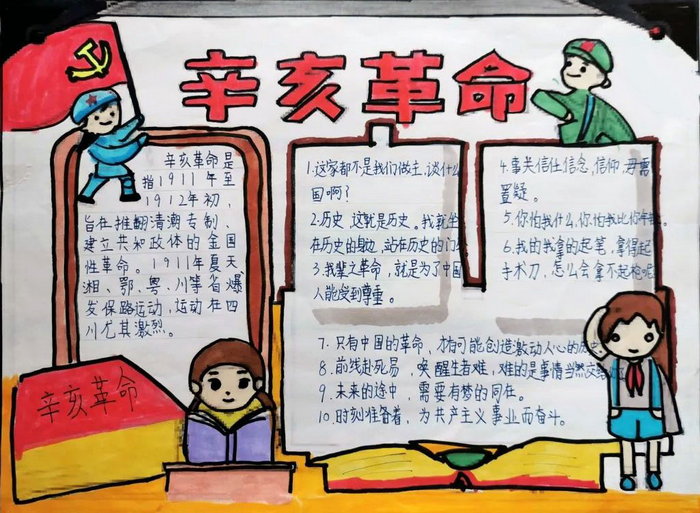 辛亥革命
辛亥革命是
指1911年至
1912年初，
旨在推翻清潮专制、
建立共和政体的全国
性革命。1911年夏天
湘、鄂、粤、川等省爆
发保路运动，运动在四
川尤其激烈。
辛亥革命
1.这家都不是我们做主，谈什么
国啊？
2.历史，这就是历史。我就坐
在历史的身边，站在历史的门
3.我辈文革命，就是为了中国
人能受到尊重。
4.事关信仕信念，信仰，毋需
置疑。
5.你怕我什么，你怕我比你年
6.我的我拿的起笔，拿得起
手术刀，怎么会拿不起枪呢
7.只有中国的革命，才有可能创造激动人心的历史
8.前线赴死易，唤醒生者难，难的是事情当然
9.未来的途中，需要有梦的同在。
10.时刻准备着，为共产主义事业而奋斗。